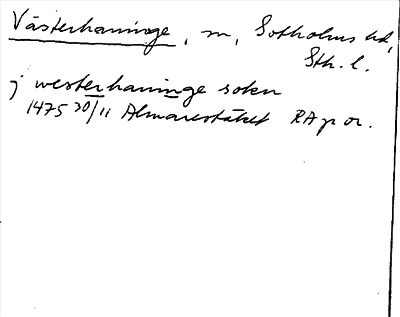 Västerhaninge, sn, Sotholms hd,
Sth. l.
j westerhaninge sokn
1475 30/11 Almarestäket RA p or.